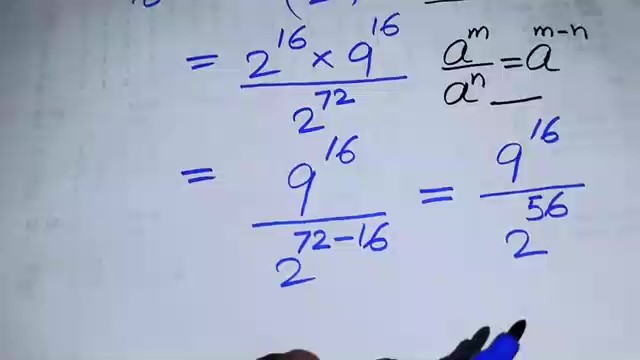 = 2^16 × 9^16 / 2^72
a^m / a^n = a^m-n
= 9^16 / 2^72-16 = 9^16 / 2^56